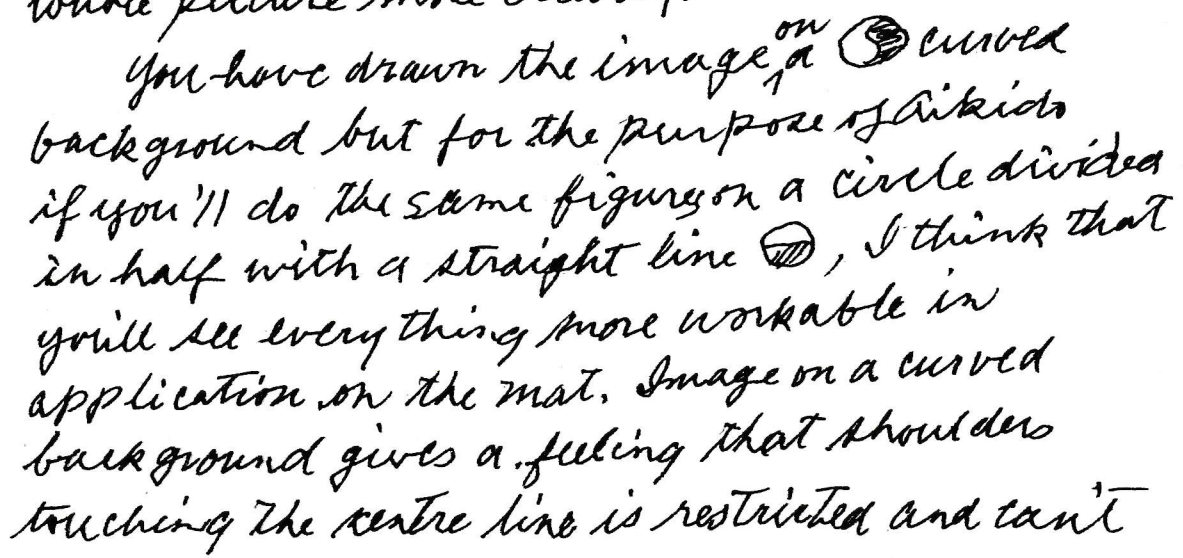 whole picture more
You have drawn the image on a curved
background but for the purpose of Aikido
if you'll do the same figures on a circle divided
in half with a straight line , I think that
you'll see everything more workable in
application on the mat. Image on a curved
background gives a feeling that shoulders
touching the centre line is restricted and can't